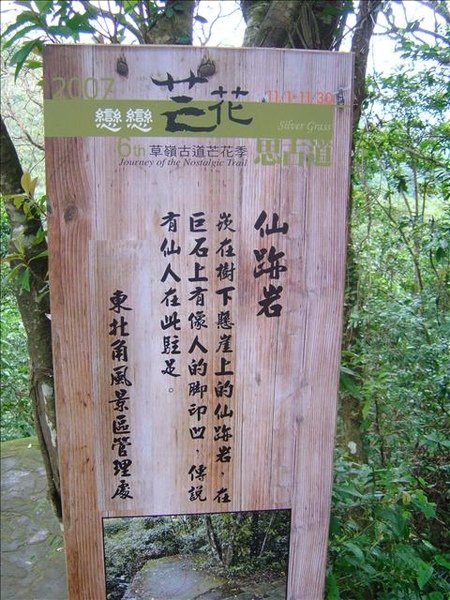 2007
戀戀芒花
11/1-11/30
Silver Grass
6th 草嶺古道芒花季
思古道
Journey of the Nostalgic Trail
仙跡岩
崁在樹下懸崖上的仙跡岩,在
巨石上有像人的脚印凹,傳說
有仙人在此駐足。
東北角風景區管理處